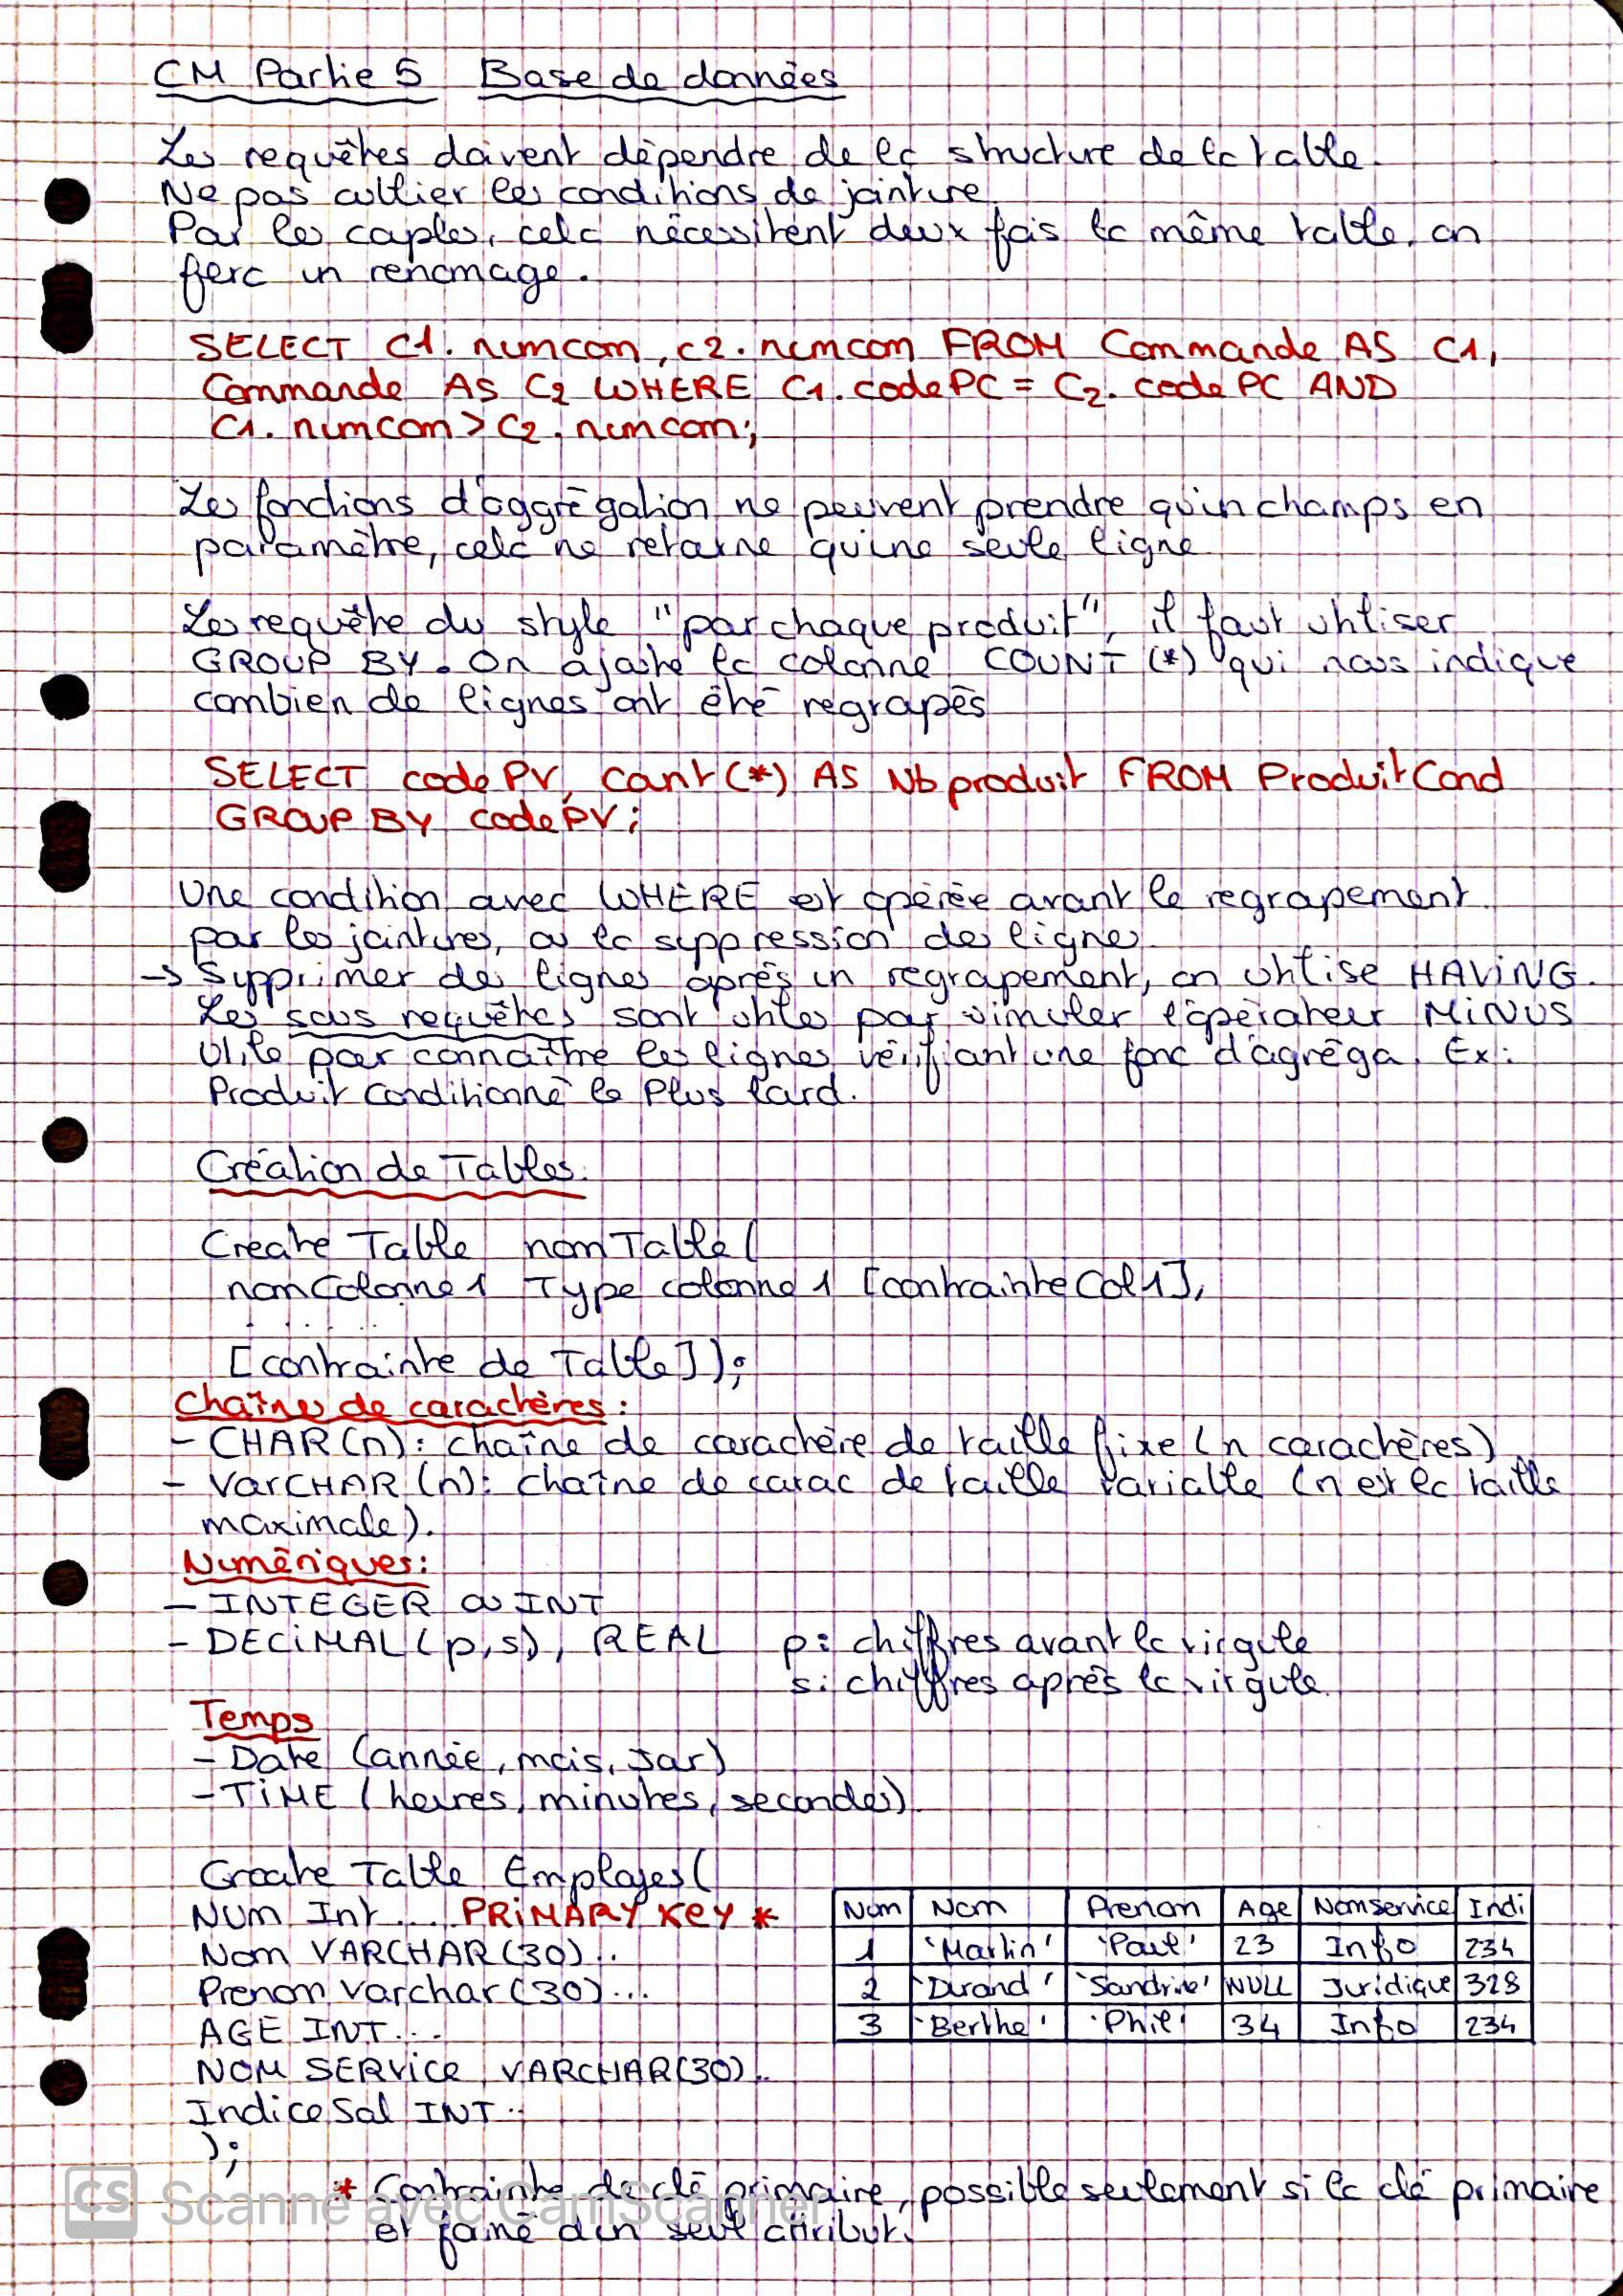 CM Partie 5 Base de données
Les requêtes doivent dépendre de la structure de la table.
Ne pas oublier les conditions de jointure.
Pour les couples, cela nécessitent deux fois la même table, on
fera un renomage.
SELECT C1.numcom, c2.numcom FROM Commande AS C1,
Commande AS C2 WHERE C1.codePC = C2.codePC AND
C1.numcom > C2.numcom;
Les fonctions d'aggrégation ne peuvent prendre qu'un champs en
paramètre, cela ne retourne qu'une seule ligne
Les requête du style "pour chaque produit", il faut utiliser
GROUP BY. On ajoute la colonne COUNT (*) qui nous indique
combien de lignes ont été regroupés
SELECT codePV, count(*) AS Nb produit FROM ProduitCond
GROUP BY codePV;
Une condition avec WHERE est opérée avant le regroupement.
pour les jointures, ou la suppression de ligne.
-> Supprimer des lignes après un regroupement, on utilise HAVING.
Les sous requêtes sont utiles pour simuler l'opérateur MINUS
Utile pour connaître les lignes vérifiant une fonc d'agréga. Ex:
Produit Conditionné le Plus tard.
Création de Tables.
Create Table nomTable(
nomColonne1 Type colonne1 [contrainteCol1],
. . . . . .
[contrainte de Table]);
Chaînes de caractères:
- CHAR(n): chaîne de caractère de taille fixe (n caractères)
- VarCHAR (n): chaîne de carac de taille variable (n est la taille
maximale).
Numériques:
- INTEGER ou INT
- DECIMAL(p,s), REAL p: chiffres avant la virgule
s: chiffres après la virgule
Temps
- Date (année, mois, Jour)
- TIME (heures, minutes, secondes)
Create Table Employes(
NUM Int .... PRIMARY KEY *
Nom VARCHAR(30)..
Prenom Varchar(30)...
AGE INT....
NOM SERVICE VARCHAR(30)..
IndiceSal INT..
);
Num Nom Prenom Age Nomservice Indi
1 'Martin' 'Paul' 23 Info 234
2 'Durand' 'Sandrine' NULL Juridique 328
3 'Berthe' 'Phil' 34 Info 234
* Contrainte de clé primaire, possible seulement si la clé primaire
est formé d'un seul attribut.
CS Scanné avec CamScanner